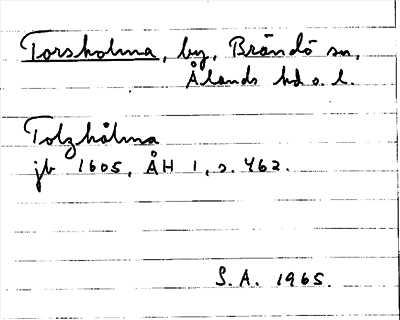 Torsholma, by, Brändö sn,
Ålands hd o. l.
Tolzhålma
jb 1605, ÅH 1, s. 462.
S.A. 1965.